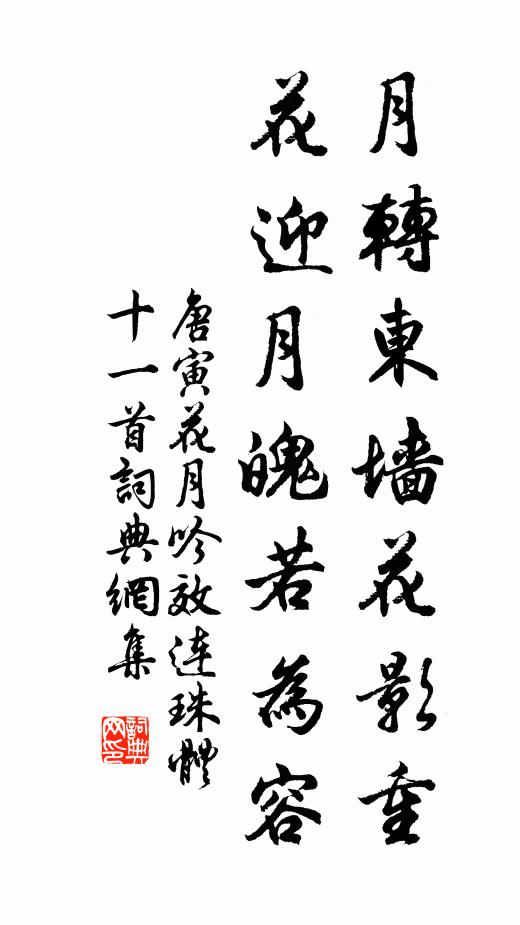 月轉東墻花影重
花迎月魄若為容
唐寅花月吟效连珠體
十一首詞典網集
詞典网印